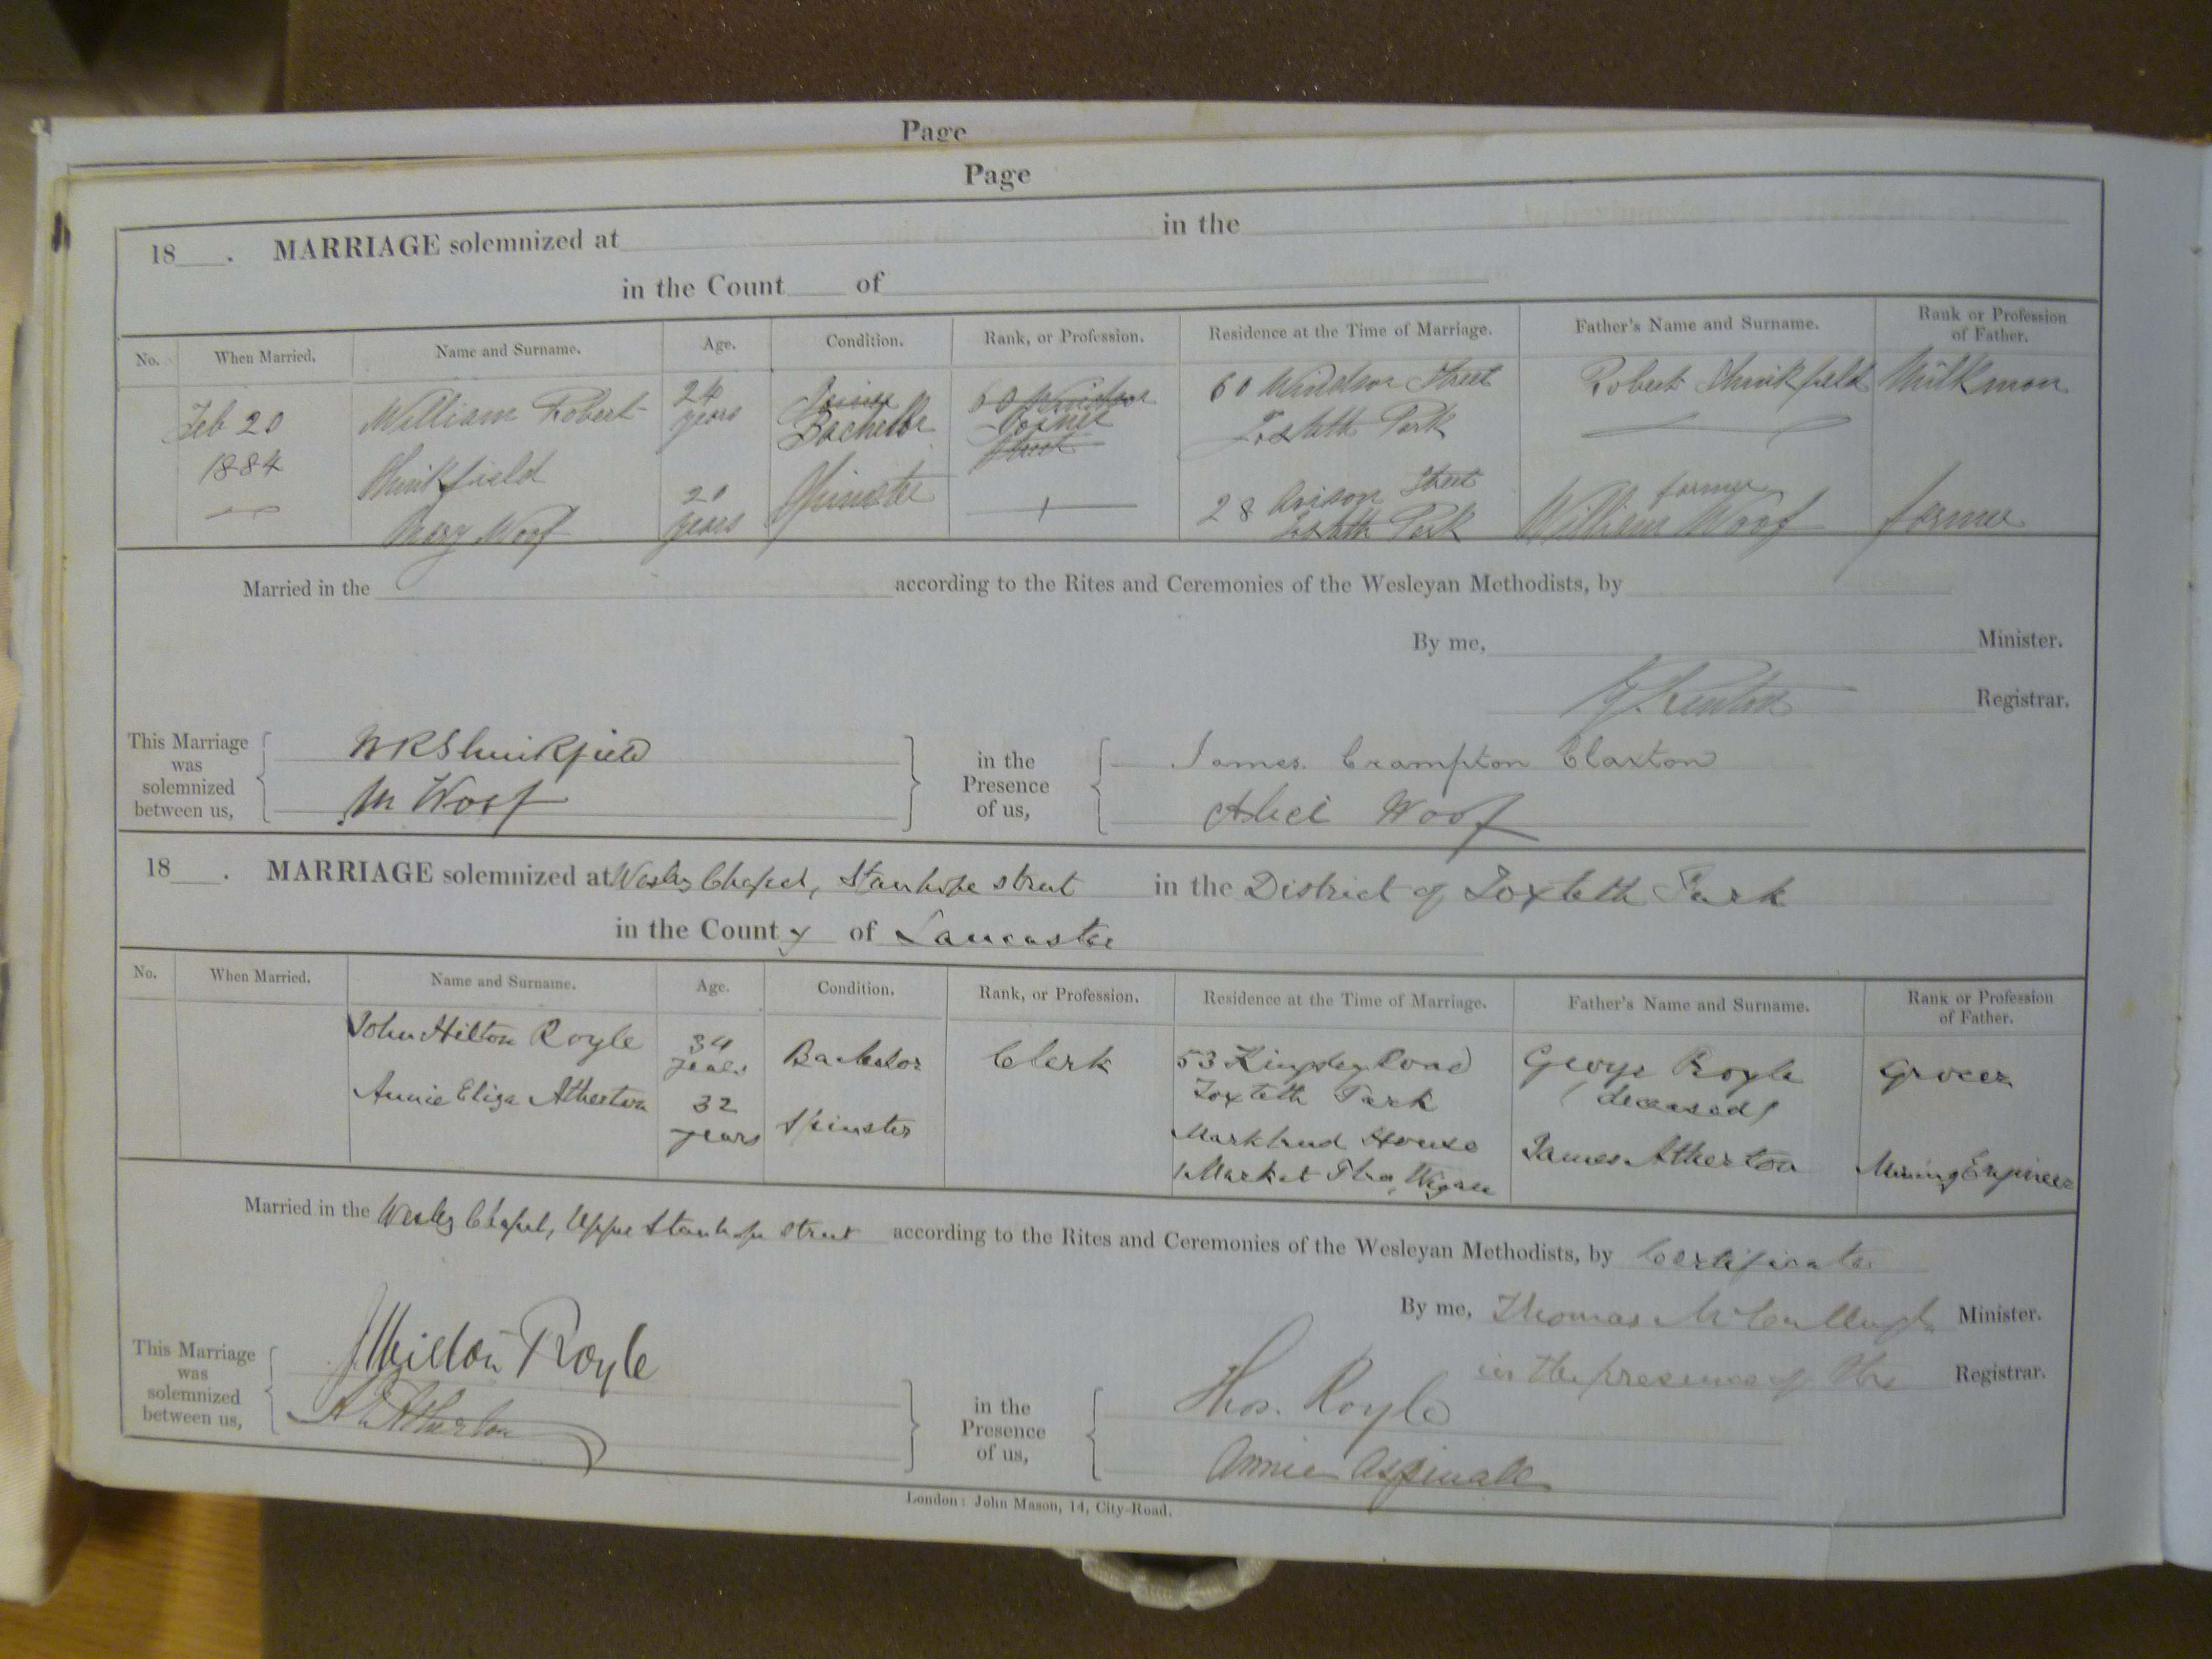 Page
Page
18 . MARRIAGE solemnized at in the
in the Count of
No. When Married. Name and Surname. Age. Condition. Rank, or Profession. Residence at the Time of Marriage. Father's Name and Surname. Rank or Profession of Father.
Feb 20 William Robert 24 years Joiner Bachelor 60 Windsor Joiner Street 60 Windsor Street Toxteth Park Robert Shinkfield Milkman
1884 Shinkfield
Mary Woof 20 years Spinster 28 Street Toxteth Park farmer William Woof farmer
Married in the according to the Rites and Ceremonies of the Wesleyan Methodists, by
By me, Minister.
Registrar.
This Marriage was solemnized between us, W R Shinkfield in the Presence of us, James Crampton Claxton
M Woof Woof
18 . MARRIAGE solemnized at Wesley Chapel, Stanhope street in the District of Toxteth Park
in the County of Lancaster
No. When Married. Name and Surname. Age. Condition. Rank, or Profession. Residence at the Time of Marriage. Father's Name and Surname. Rank or Profession of Father.
John Hilton Royle 34 years Bachelor Clerk 53 Kingsley Road Toxteth Park George Royle (deceased) Grocer
Annie Eliza Atherton 32 years Spinster Markland House Market Place, Wigan James Atherton Mining Engineer
Married in the Wesley Chapel, Upper Stanhope street according to the Rites and Ceremonies of the Wesleyan Methodists, by Certificate
By me, Thomas McCullagh Minister.
in the presence of the Registrar.
This Marriage was solemnized between us, J Hilton Royle in the Presence of us, Thos. Royle
A E Atherton Annie Aspinall
London: John Mason, 14, City-Road.